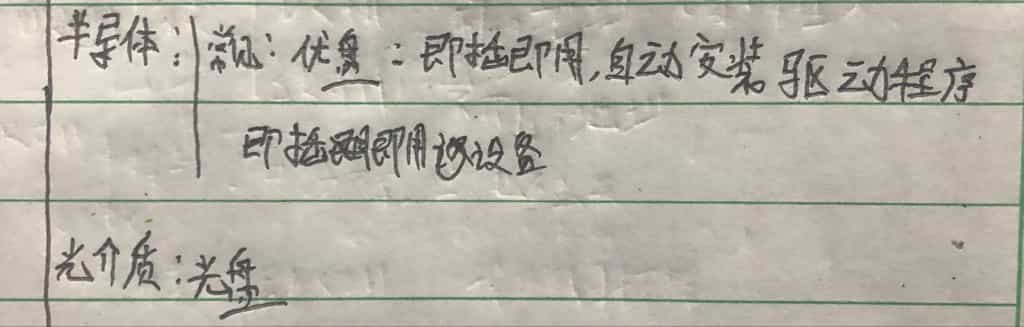 半导体：常见：优盘：即插即用，自动安装驱动程序
即插即用该设备
光介质：光盘